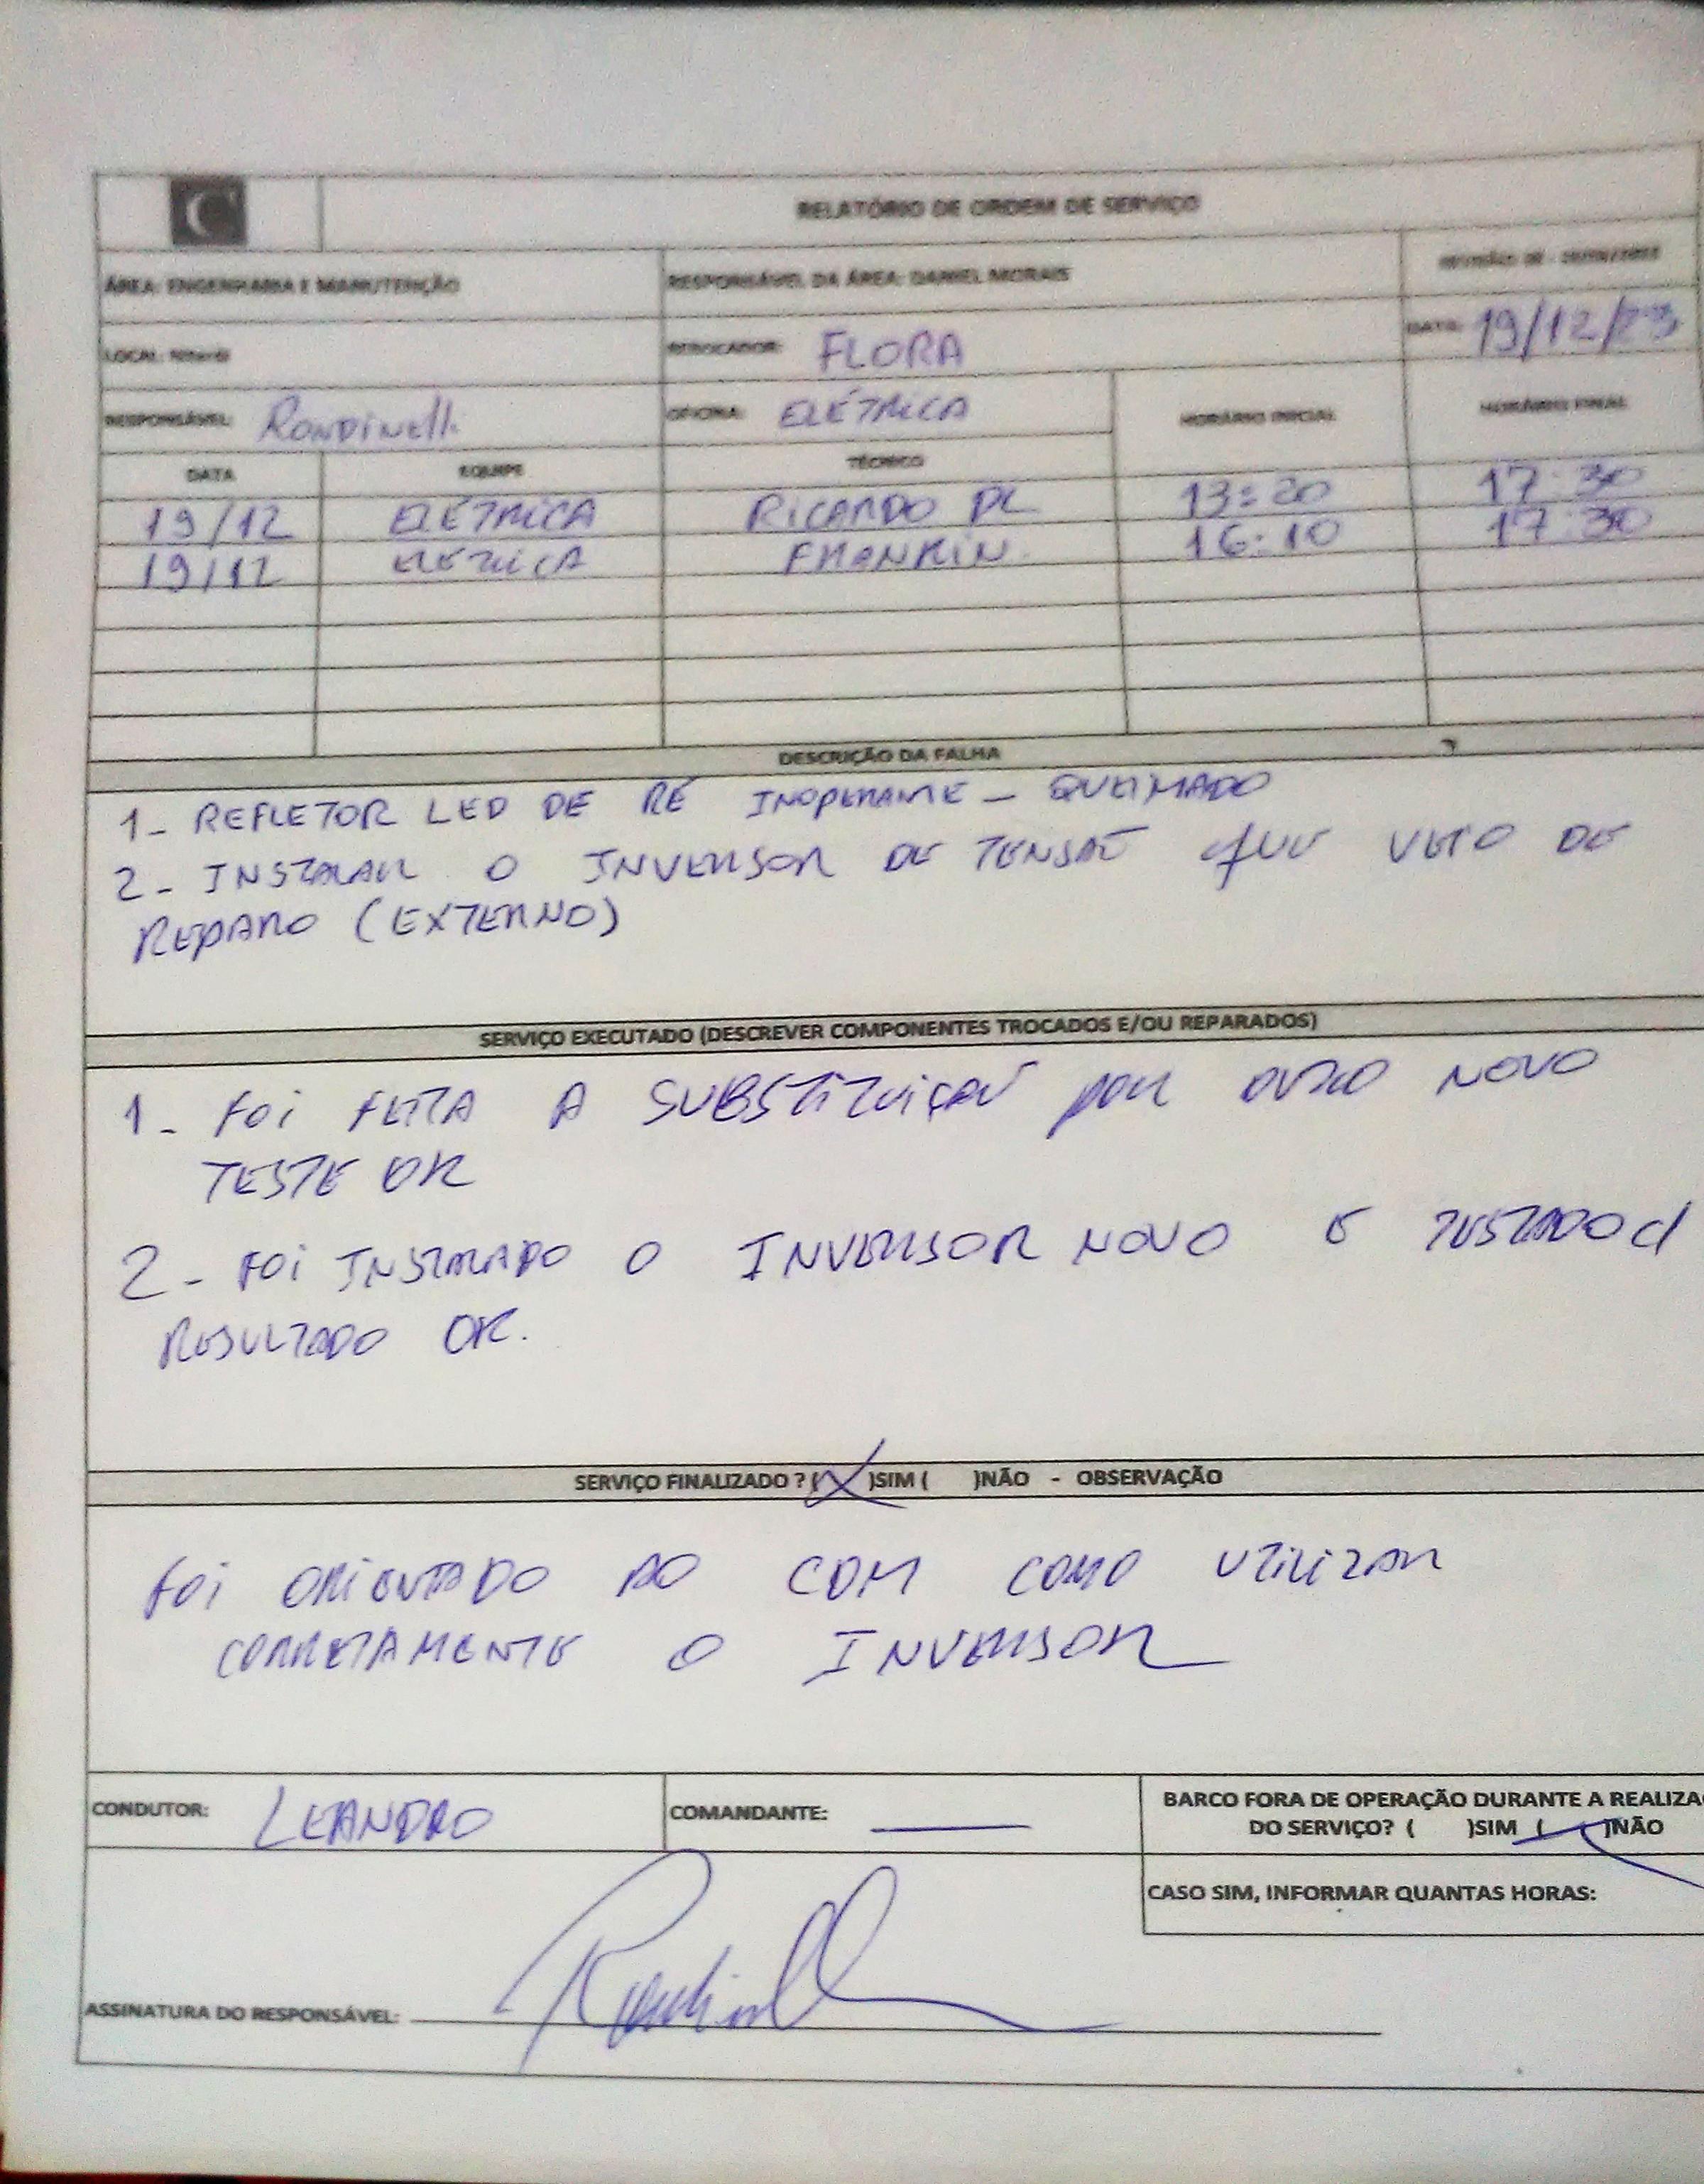 C
RELATÓRIO DE ORDEM DE SERVIÇO
ÁREA: ENGENHARIA E MANUTENÇÃO
RESPONSÁVEL DA ÁREA: DANIEL MORAIS
LOCAL: Niterói
REBOCADOR: FLORA
DATA: 19/12/23
RESPONSÁVEL: Rondinelli
OFICINA: ELÉTRICA
HORÁRIO INICIAL
HORÁRIO FINAL
DATA EQUIPE TÉCNICO
19/12 ELÉTRICA RICARDO DL 13:20 17:30
19/12 ELÉTRICA FRANKIN. 16:10 17:30
DESCRIÇÃO DA FALHA
1- REFLETOR LED DE RÉ INOPERANTE - QUEIMADO
2- INSTALAR O INVERSOR DE TENSÃO QUE VEIO DE
REPARO (EXTERNO)
SERVIÇO EXECUTADO (DESCREVER COMPONENTES TROCADOS E/OU REPARADOS)
1- FOI FEITA A SUBSTITUIÇÃO POR OUTRO NOVO
TESTE OK
2- FOI INSTALADO O INVERSOR NOVO E TESTADO C/
RESULTADO OK.
SERVIÇO FINALIZADO ? (X)SIM ( )NÃO - OBSERVAÇÃO
FOI ORIENTADO AO CDM COMO UTILIZAR
CORRETAMENTE O INVERSOR
CONDUTOR: LEANDRO
COMANDANTE: ———
BARCO FORA DE OPERAÇÃO DURANTE A REALIZAÇ
DO SERVIÇO? ( )SIM ( )NÃO
CASO SIM, INFORMAR QUANTAS HORAS:
ASSINATURA DO RESPONSÁVEL: Rondinelli